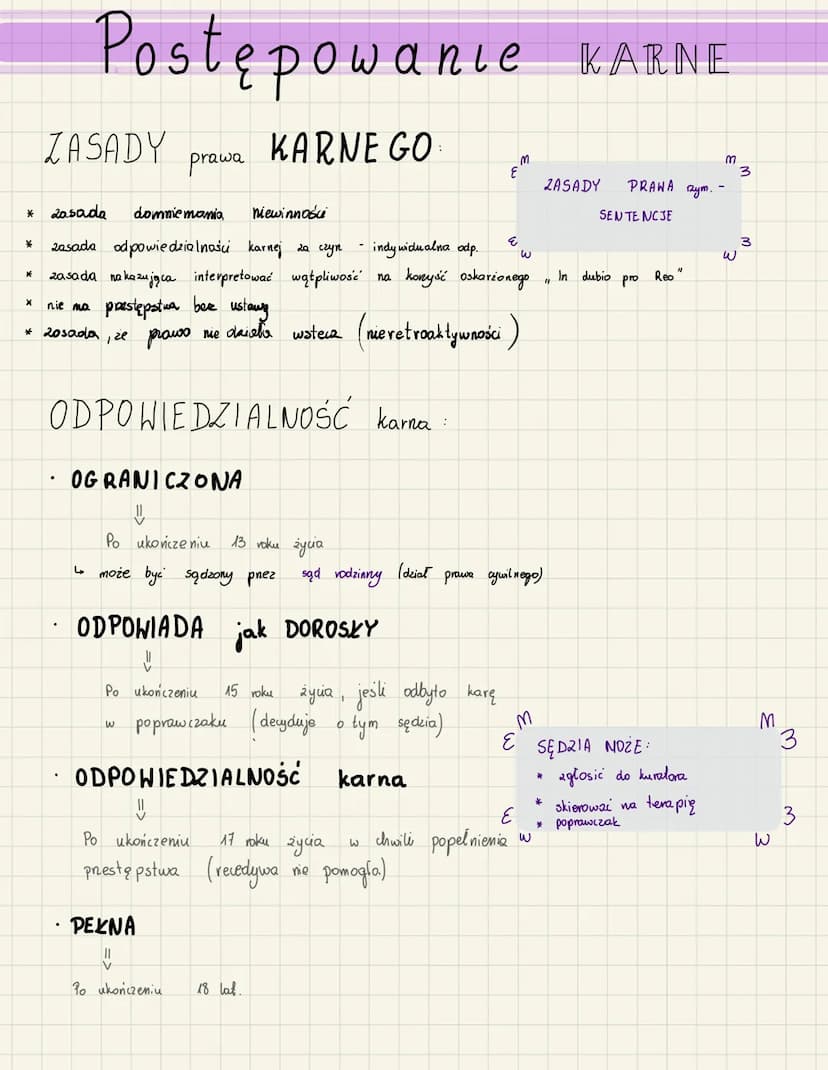 Postępowanie KARNE
ZASADY prawa KARNEGO:
ZASADY PRAWA rzym. -
SENTENCJE
* zasada domniemania niewinności
* zasada odpowiedzialności karnej za czyn - indywidualna odp.
* zasada nakazująca interpretować wątpliwość na korzyść oskarżonego „In dubio pro Reo"
* nie ma przestępstwa bez ustawy
* zasada, że prawo nie działa wstecz (nieretroaktywności)
ODPOWIEDZIALNOŚĆ karna:
· OGRANICZONA
⇓
Po ukończeniu 13 roku życia
↳ może być sądzony przez sąd rodzinny (dział prawa cywilnego)
· ODPOWIADA jak DOROSŁY
⇓
Po ukończeniu 15 roku życia, jeśli odbyto karę
w poprawczaku (decyduje o tym sędzia)
SĘDZIA MOŻE:
* zgłosić do kuratora
* skierować na terapię
* poprawczak
· ODPOWIEDZIALNOŚĆ karna
⇓
Po ukończeniu 17 roku życia w chwili popełnienia
przestępstwa (recedywa nie pomogła)
· PEŁNA
⇓
Po ukończeniu 18 lat.